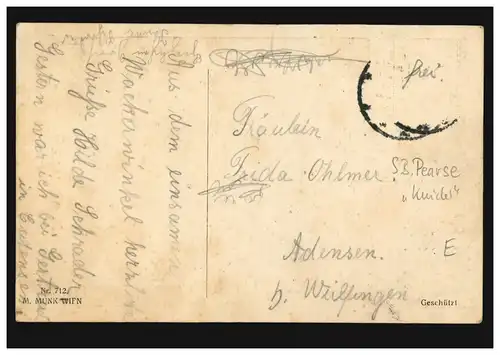 Aus dem einsamen
Wackerwinkel herzl.
Grüße Hilde Schrader
Gestern war ich bei
in
Fräulein
Frida Ohlmer
Adensen
b. Wülfingen
frei.
S.B. Pearse
"Kinder"
E
Nr. 712.
M. MUNK WIEN
Geschützt